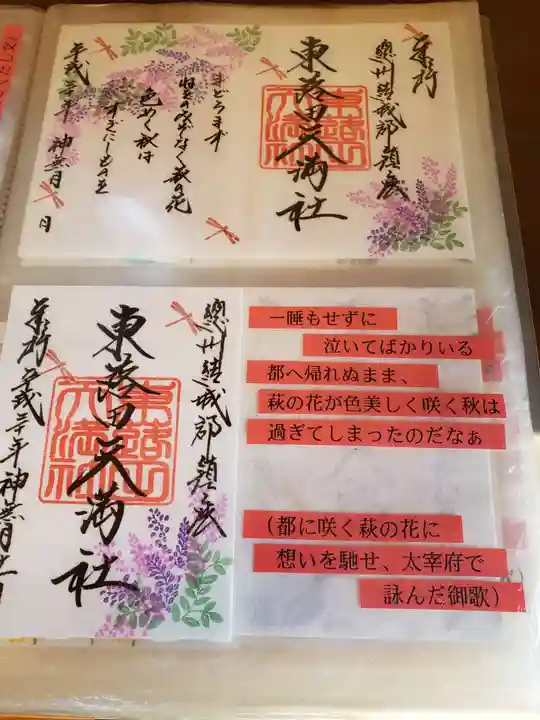 奉拝
總州結城郡鎮座
東蕗田天満社
まどろまず
ねをのみぞなく萩の花
色めく秋は
すぎにしものを
平成三十年 神無月 日
總州結城郡鎮座
東蕗田天満社
奉拝 平成三十年神無月
一睡もせずに
泣いてばかりいる
都へ帰れぬまま、
萩の花が色美しく咲く秋は
過ぎてしまったのだなぁ
(都に咲く萩の花に
想いを馳せ、太宰府で
詠んだ御歌)